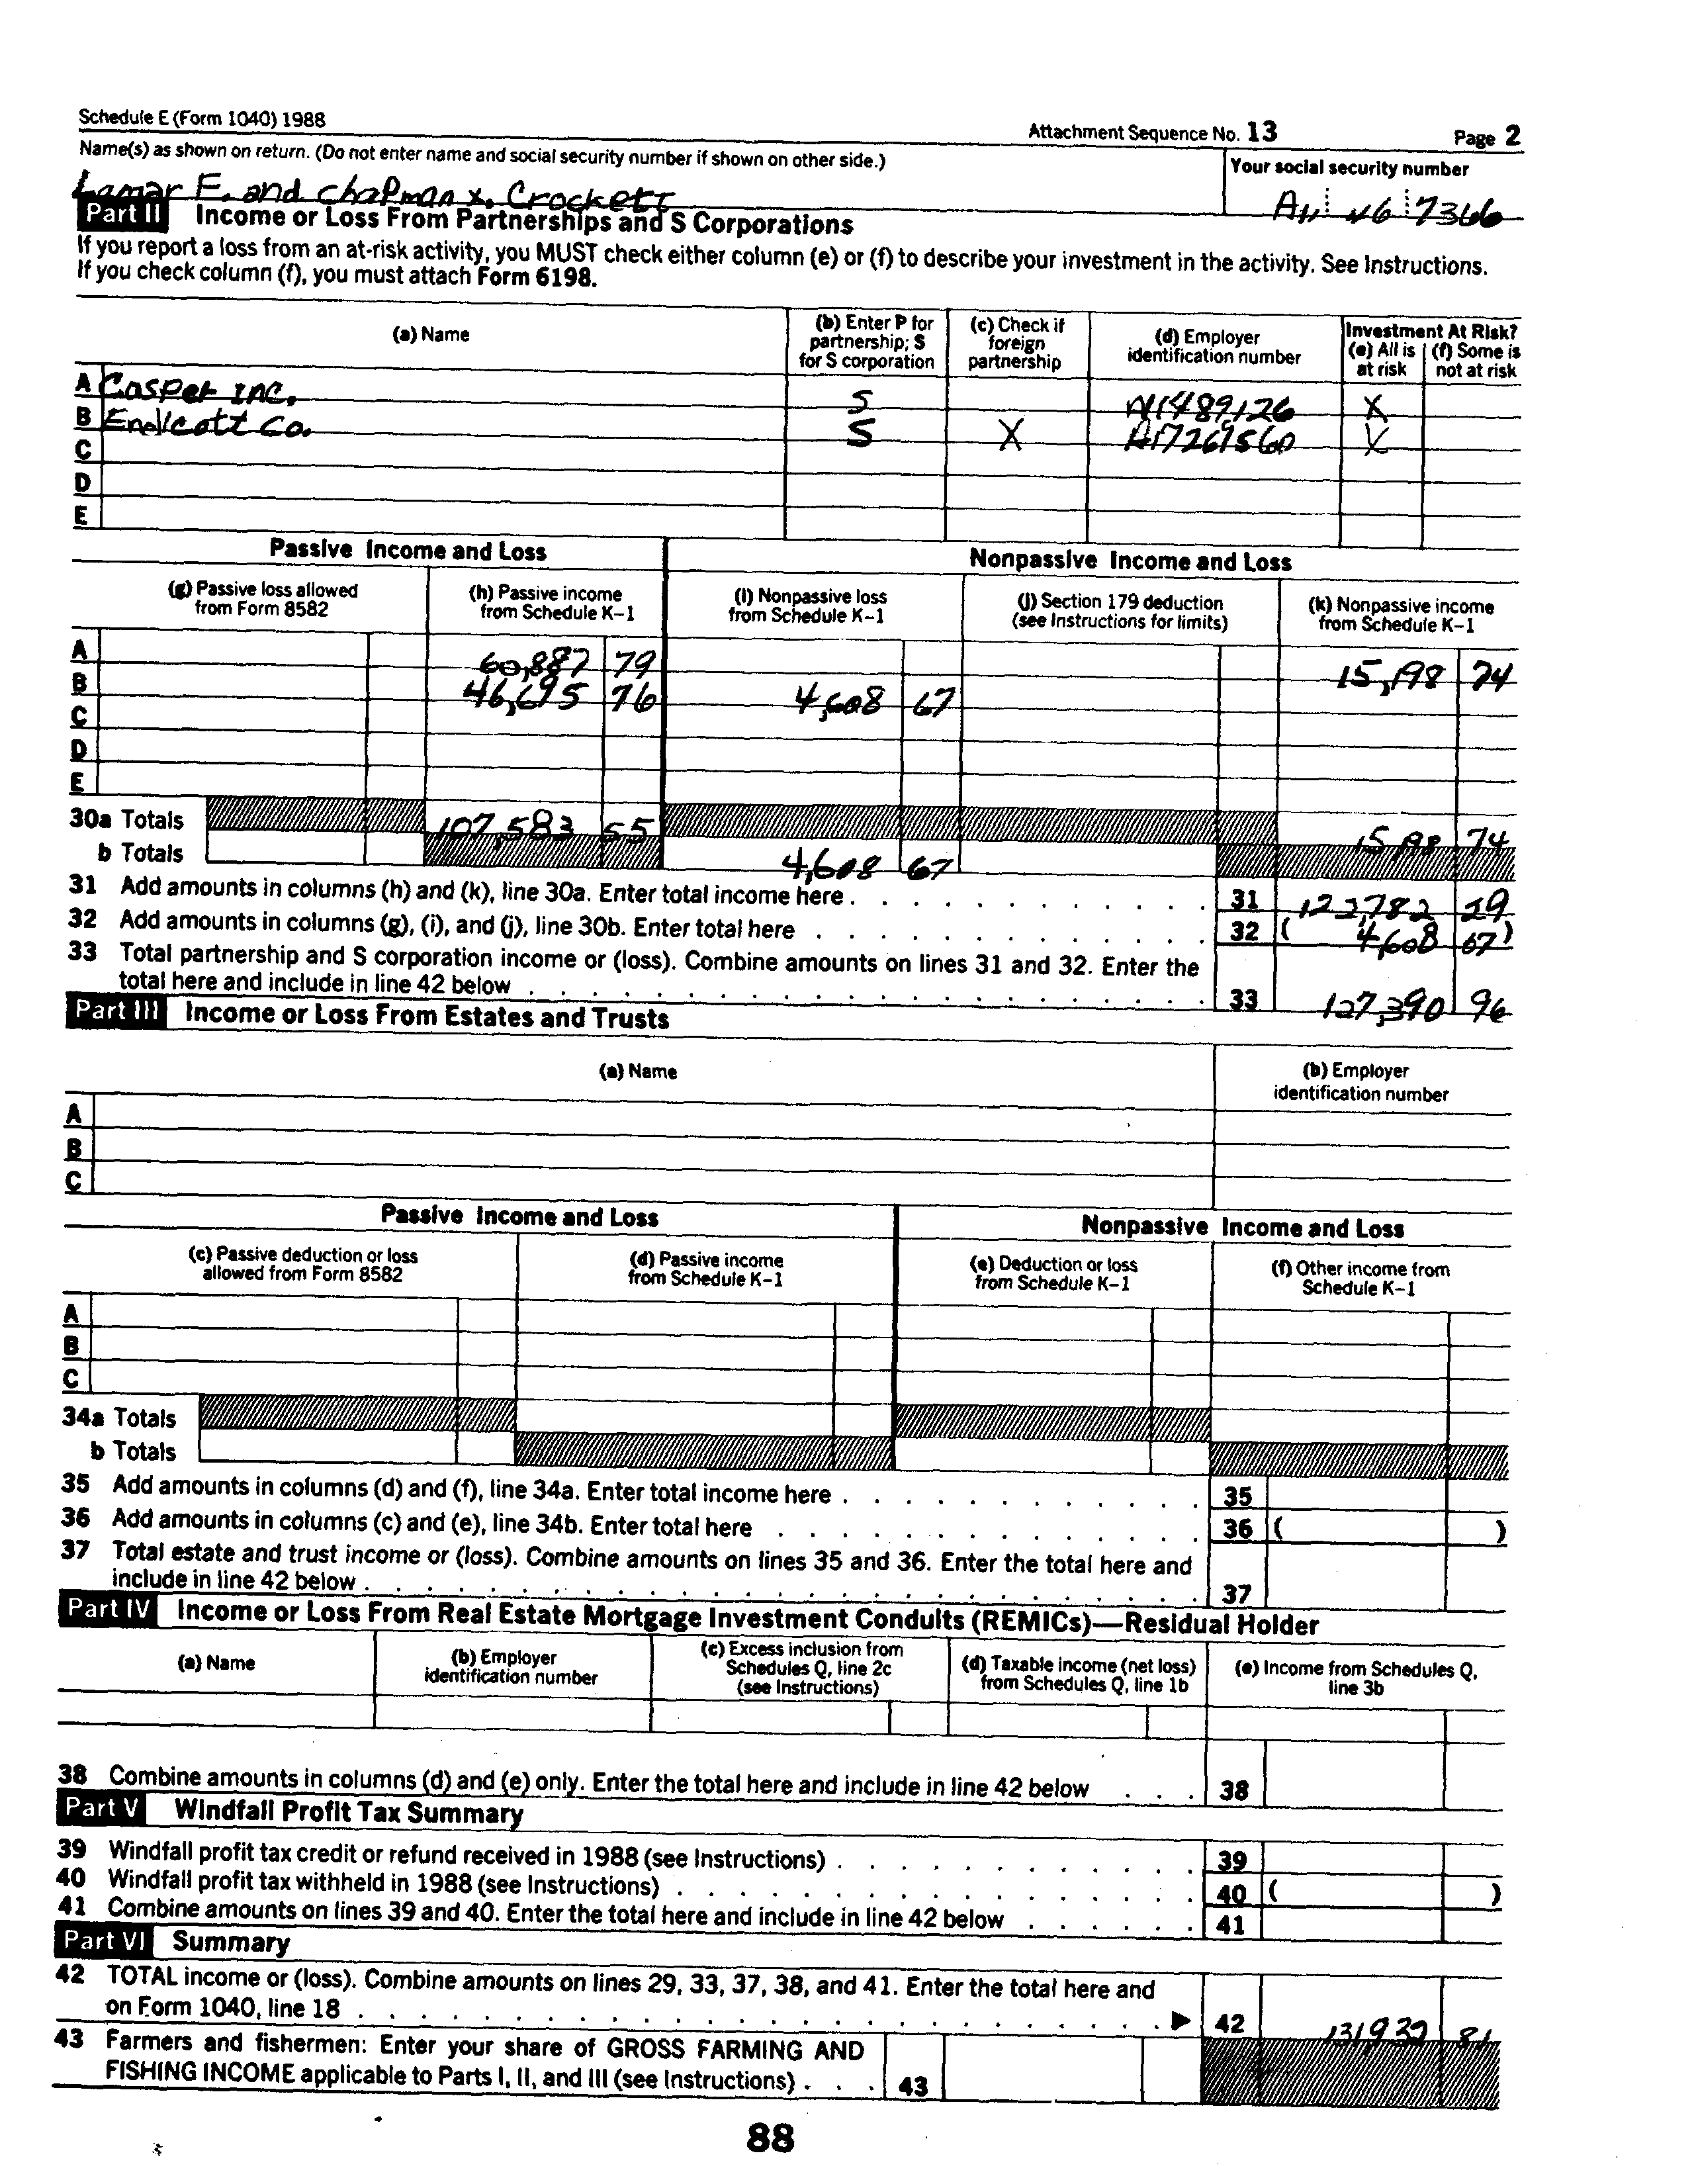 Schedule E (Form 1040) 1988
Attachment Sequence No. 13 Page 2
Name(s) as shown on return. (Do not enter name and social security number if shown on other side.)
Your social security number
Lamar F. and Chapman X. Crockett
7366
Part II Income or Loss From Partnerships and S Corporations
If you report a loss from an at-risk activity, you MUST check either column (e) or (f) to describe your investment in the activity. See Instructions.
If you check column (f), you must attach Form 6198.
(a) Name
(b) Enter P for partnership; S for S corporation
(c) Check if foreign partnership
(d) Employer identification number
Investment At Risk?
(e) All is at risk
(f) Some is not at risk
A Casper Inc. S X
B Endicott Co. S X X
C
D
E
Passive Income and Loss
Nonpassive Income and Loss
(g) Passive loss allowed from Form 8582
(h) Passive income from Schedule K-1
(i) Nonpassive loss from Schedule K-1
(j) Section 179 deduction (see Instructions for limits)
(k) Nonpassive income from Schedule K-1
A 60,887 79 15,198 74
B 46,695 76 4,608 67
C
D
E
30a Totals 107,583 55 15,198 74
b Totals 4,608 67
31 Add amounts in columns (h) and (k), line 30a. Enter total income here 31 122,782 29
32 Add amounts in columns (g), (i), and (j), line 30b. Enter total here 32 ( 4,608 67 )
33 Total partnership and S corporation income or (loss). Combine amounts on lines 31 and 32. Enter the
total here and include in line 42 below 33 127,390 96
Part III Income or Loss From Estates and Trusts
(a) Name
(b) Employer identification number
A
B
C
Passive Income and Loss
Nonpassive Income and Loss
(c) Passive deduction or loss allowed from Form 8582
(d) Passive income from Schedule K-1
(e) Deduction or loss from Schedule K-1
(f) Other income from Schedule K-1
A
B
C
34a Totals
b Totals
35 Add amounts in columns (d) and (f), line 34a. Enter total income here 35
36 Add amounts in columns (c) and (e), line 34b. Enter total here 36 ( )
37 Total estate and trust income or (loss). Combine amounts on lines 35 and 36. Enter the total here and
include in line 42 below 37
Part IV Income or Loss From Real Estate Mortgage Investment Conduits (REMICs)—Residual Holder
(a) Name
(b) Employer identification number
(c) Excess inclusion from Schedules Q, line 2c (see Instructions)
(d) Taxable income (net loss) from Schedules Q, line 1b
(e) Income from Schedules Q, line 3b
38 Combine amounts in columns (d) and (e) only. Enter the total here and include in line 42 below 38
Part V Windfall Profit Tax Summary
39 Windfall profit tax credit or refund received in 1988 (see Instructions) 39
40 Windfall profit tax withheld in 1988 (see Instructions) 40 ( )
41 Combine amounts on lines 39 and 40. Enter the total here and include in line 42 below 41
Part VI Summary
42 TOTAL income or (loss). Combine amounts on lines 29, 33, 37, 38, and 41. Enter the total here and
on Form 1040, line 18 ▶ 42 131,932 81
43 Farmers and fishermen: Enter your share of GROSS FARMING AND
FISHING INCOME applicable to Parts I, II, and III (see Instructions) 43
88